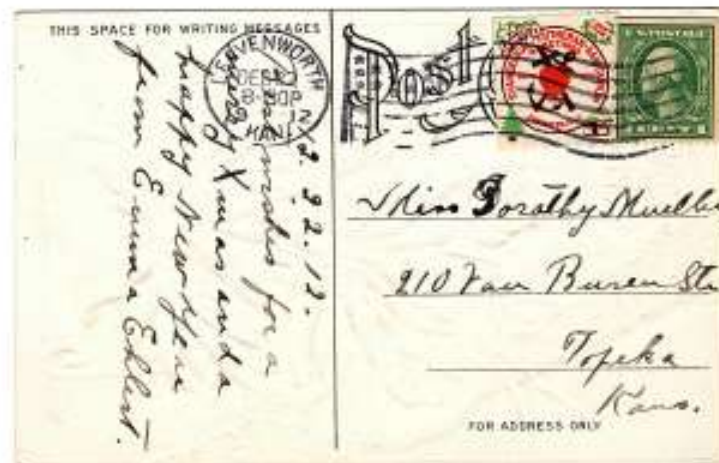 THIS SPACE FOR WRITING MESSAGES
LEAVENWORTH
DEC
8-30P
12
KANS
Post
12.22.12.
wishes for a
Merry Xmas and a
Happy New Year
from Emma Ehlert.
Miss Dorothy Mueller
210 Van Buren Str
Topeka
Kans.
FOR ADDRESS ONLY